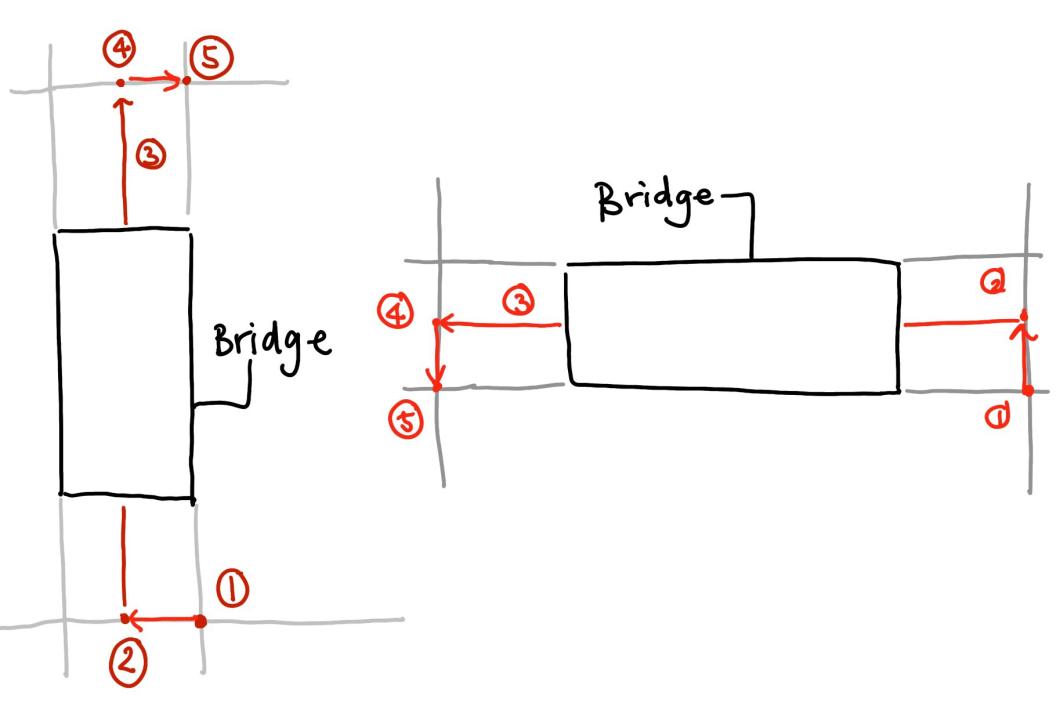 ④
⑤
③
Bridge
①
②
Bridge
③
④
⑤
②
①